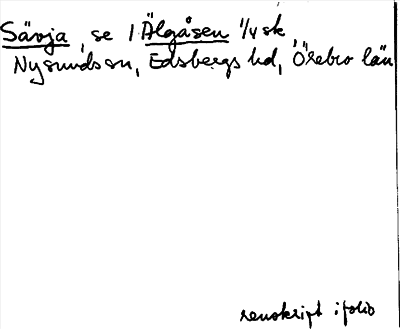 Sävja, se 1 Älgåsen 1/4 sk,
Nysunds sn, Edsbergs hd, Örebro län
renskript i folio